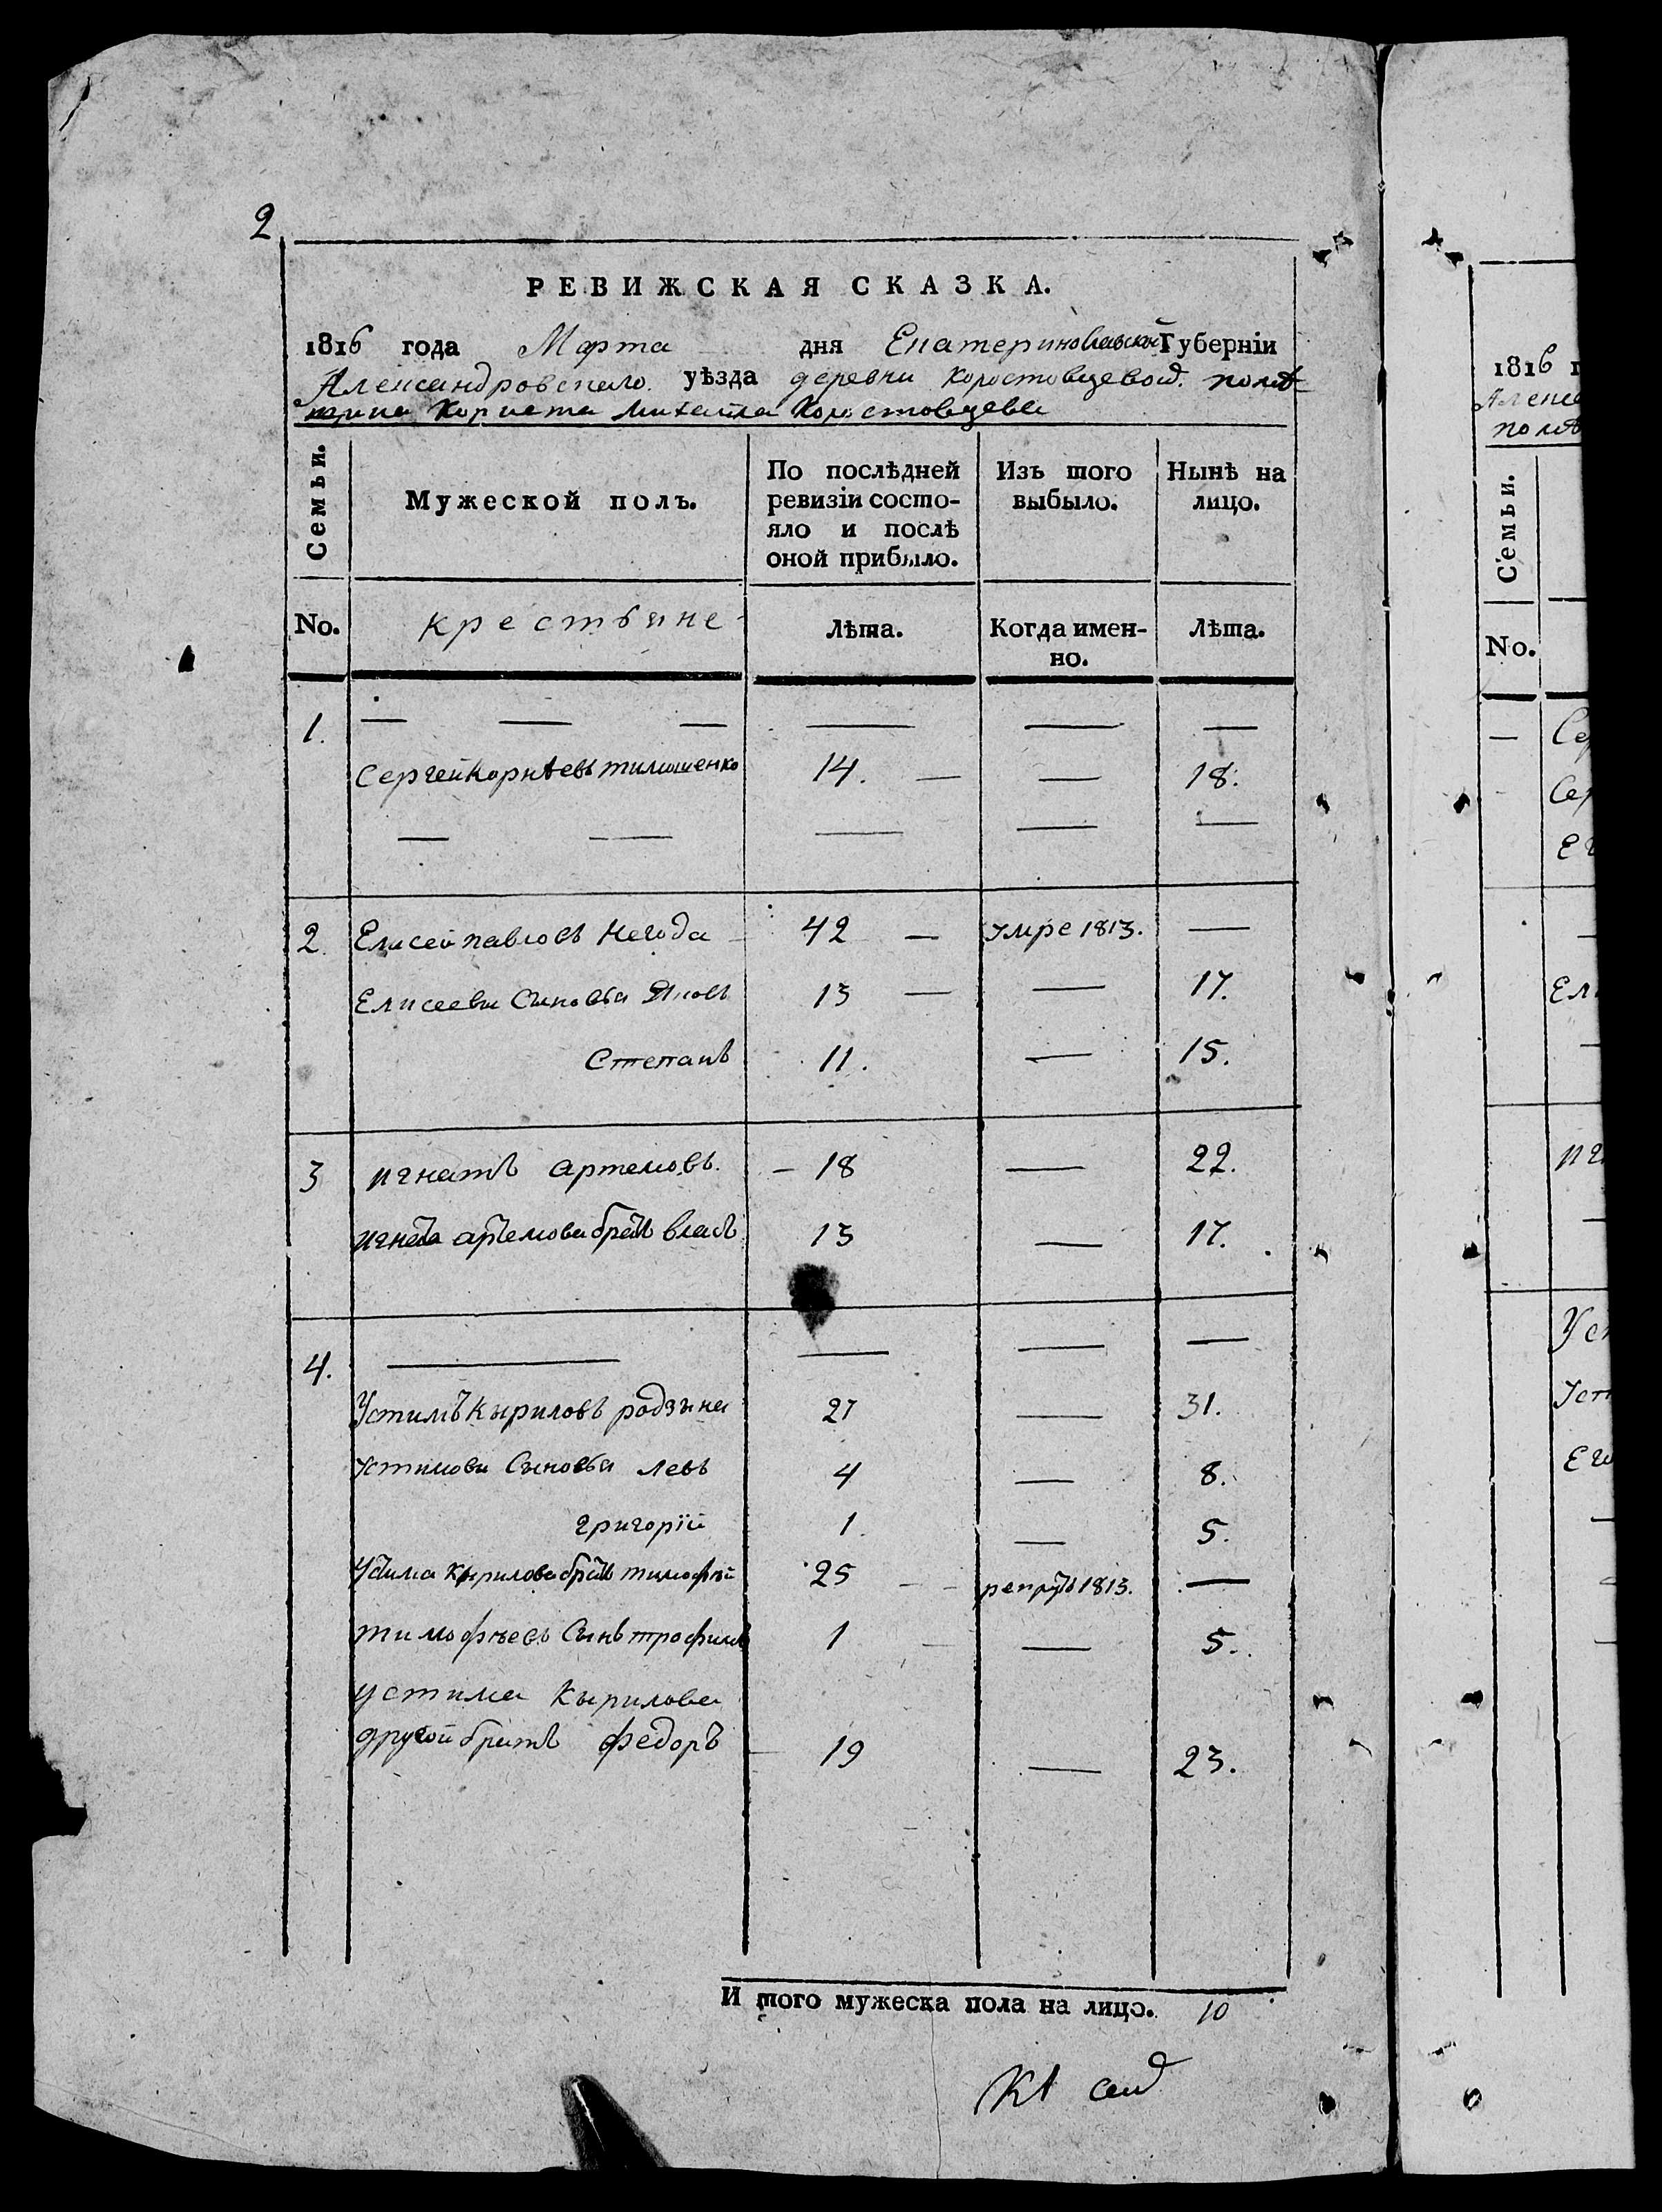 2
РЕВИЖСКАЯ СКАЗКА.
1816 года Марта дня Екатеринославской Губерніи
Александровскаго уѣзда деревни Коростовцевой помѣ-
щика Корнета Михайла Коростовцева
Семьи.
Мужеской полъ.
По послѣдней ревизіи состо-
яло и послѣ
оной прибыло.
Изъ того выбыло.
Нынѣ на лицо.
No. крестьяне Лѣта. Когда имен-
но. Лѣта.
1. — — — — — —
Сергей Корнѣевъ тимошенко 14. — — 18.
— — — — —
2. Елисей павловъ Негода 42 — умре 1813. —
Елисеевы Сыновья Яковъ 13 — — 17.
Степанъ 11. — 15.
3 игнатъ артемовъ. — 18 — 22.
игната артемова братъ власъ 13 — 17.
4. — — — —
Устимъ Кириловъ родзина 27 — 31.
устимовы Сыновья левъ 4 — 8.
григорій 1. — 5.
Устима Кырилова братъ тимофей 25 — рекрутъ 1813. —
тимофѣевъ Сынъ трофимъ 1 — — 5.
устима Кырилова
другой братъ федоръ — 19 — 23.
И того мужеска пола на лицо. 10
1816
Алекс
помѣ
Семьи.
No.
— Се
Се
Ег
Ел
иг
Ус
Уст
Ег